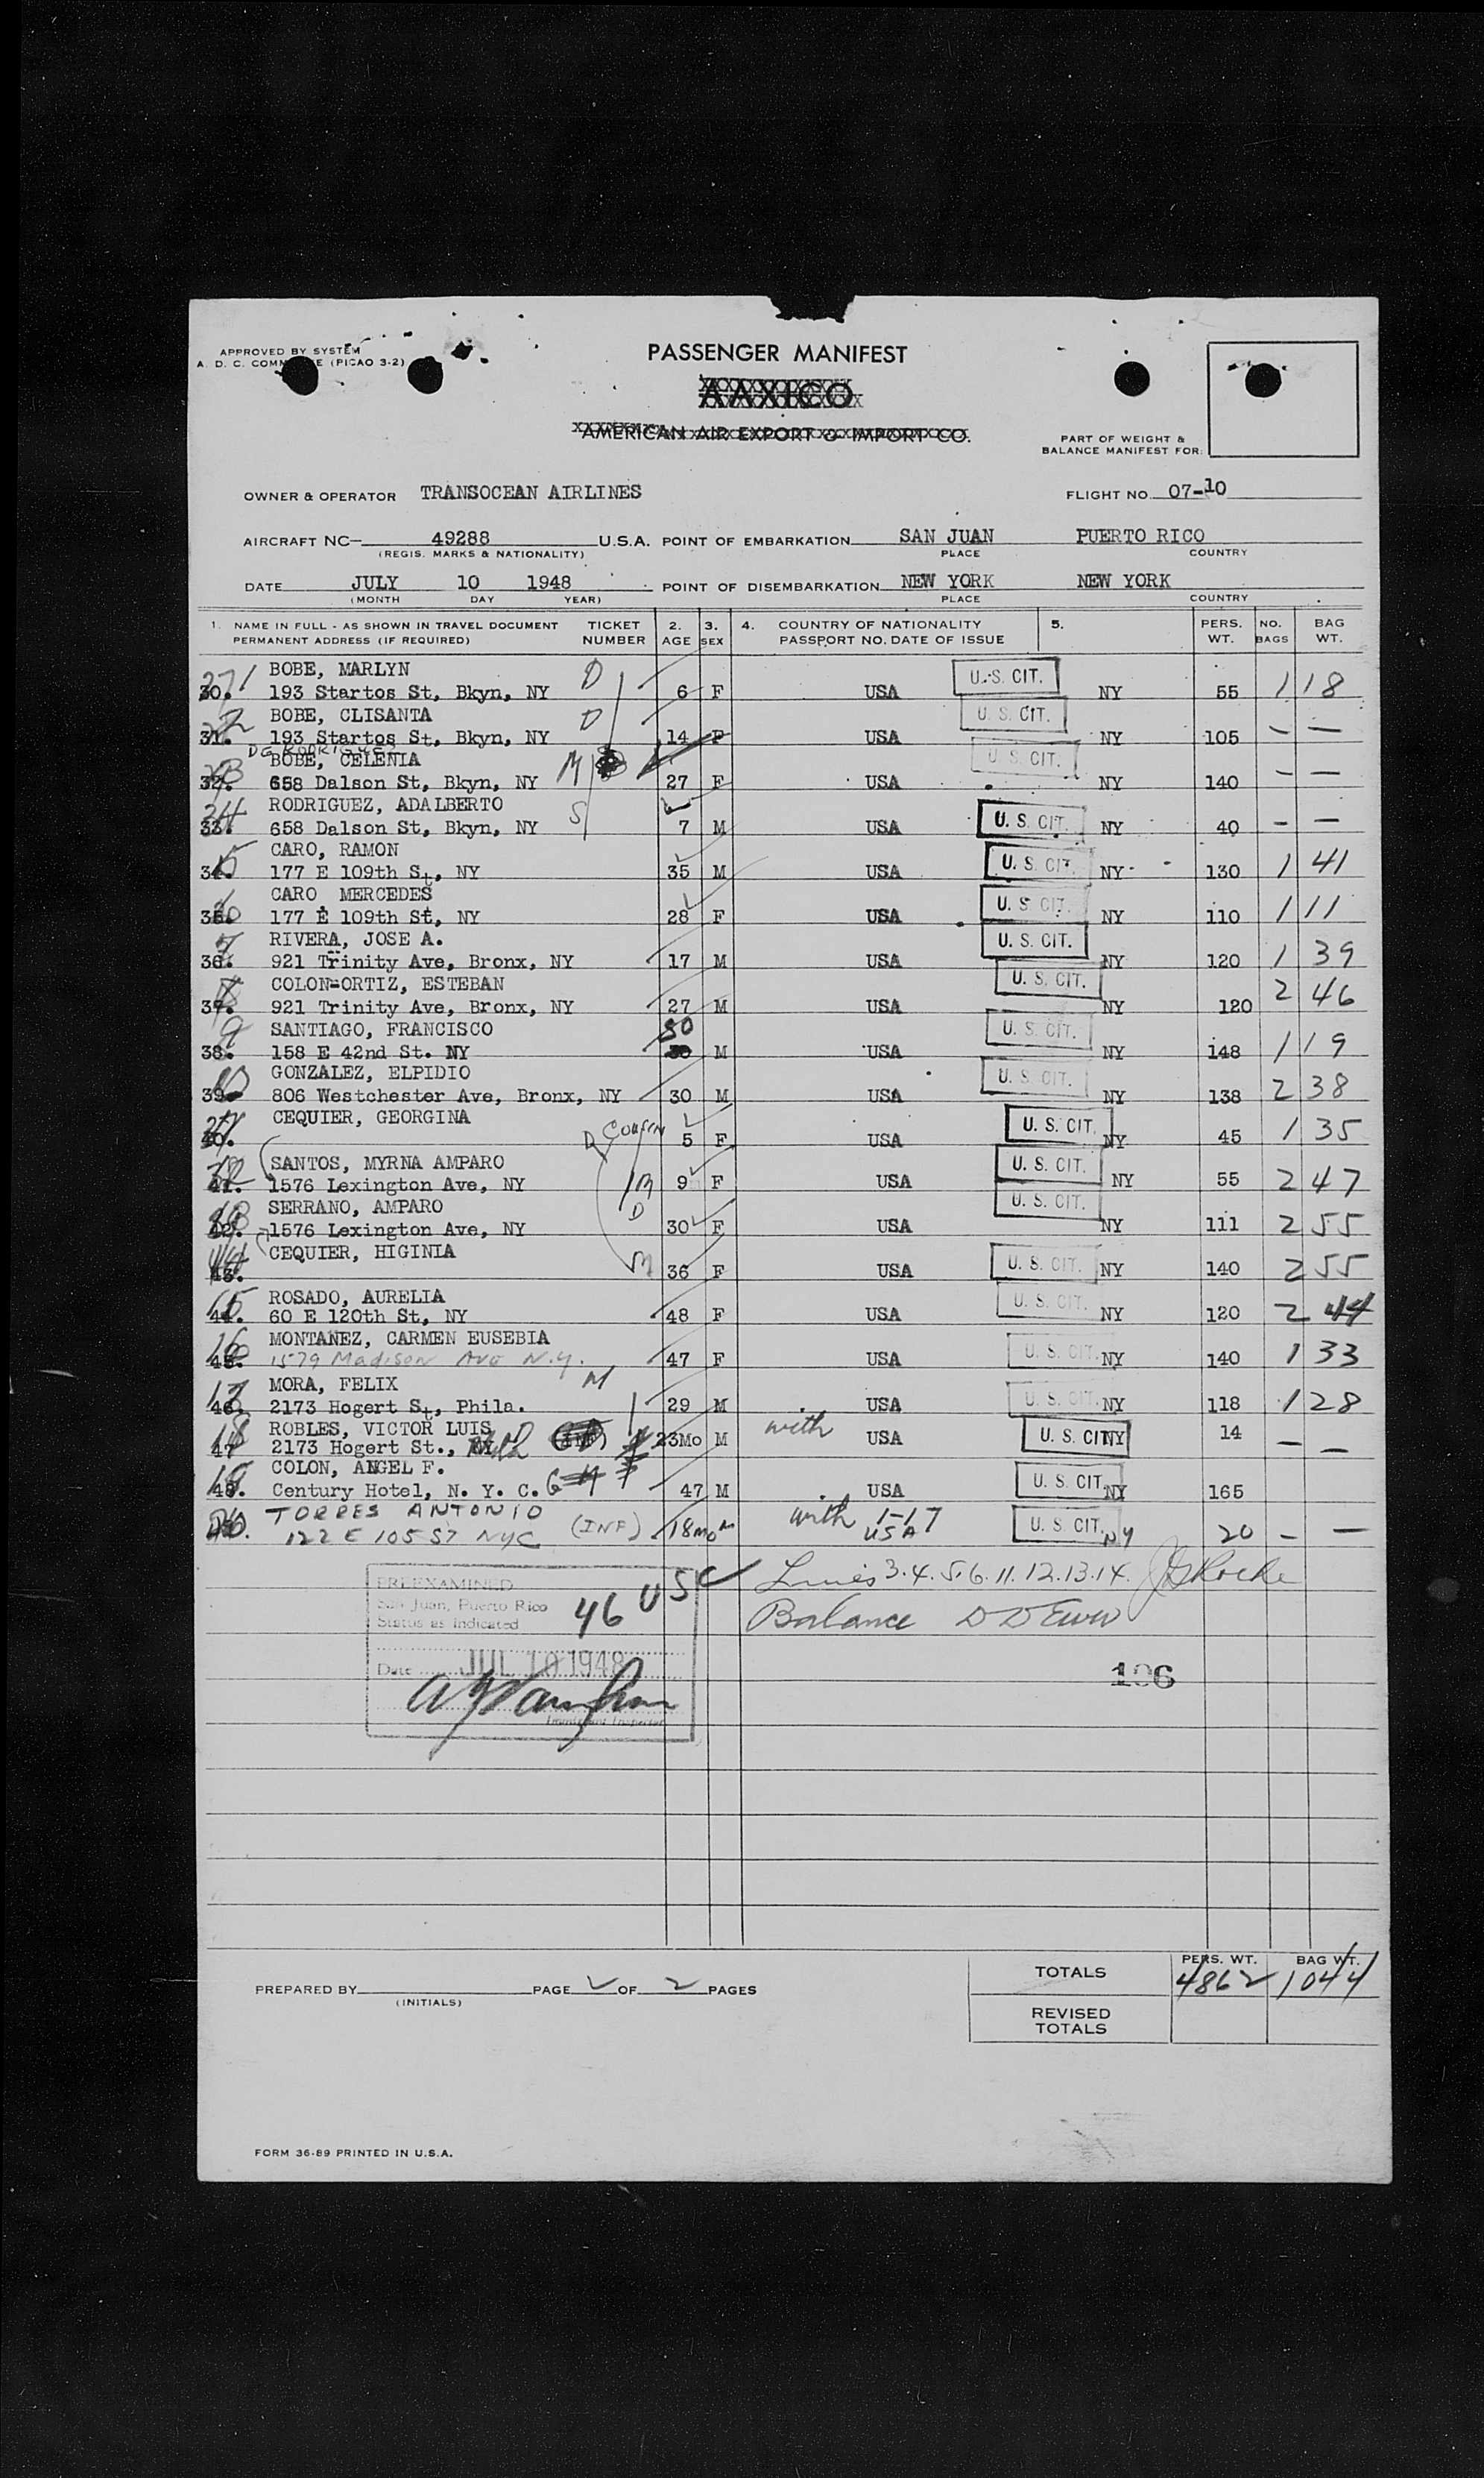 APPROVED BY SYSTEM
A. D. C. COMM E (PICAO 3-2)
PASSENGER MANIFEST
AAXICO
AMERICAN AIR EXPORT & IMPORT CO.
PART OF WEIGHT &
BALANCE MANIFEST FOR:
OWNER & OPERATOR TRANSOCEAN AIRLINES FLIGHT NO. 07-10
AIRCRAFT NC— 49288 U.S.A. POINT OF EMBARKATION SAN JUAN PUERTO RICO
(REGIS. MARKS & NATIONALITY) PLACE COUNTRY
DATE JULY 10 1948 POINT OF DISEMBARKATION NEW YORK NEW YORK
(MONTH DAY YEAR) PLACE COUNTRY
1. NAME IN FULL - AS SHOWN IN TRAVEL DOCUMENT TICKET 2. 3. 4. COUNTRY OF NATIONALITY 5. PERS. NO. BAG
PERMANENT ADDRESS (IF REQUIRED) NUMBER AGE SEX PASSPORT NO. DATE OF ISSUE WT. BAGS WT.
BOBE, MARLYN D U. S. CIT.
30. 193 Startos St, Bkyn, NY 6 F USA NY 55 1 18
BOBE, CLISANTA D U. S. CIT.
31. 193 Startos St, Bkyn, NY 14 F USA NY 105 — —
DE RODRIGUEZ
BOBE, CELENIA M U. S. CIT.
32. 658 Dalson St, Bkyn, NY 27 F USA NY 140 — —
RODRIGUEZ, ADALBERTO S U. S. CIT.
33. 658 Dalson St, Bkyn, NY 7 M USA NY 40 — —
CARO, RAMON U. S. CIT.
34. 177 E 109th St, NY 35 M USA NY 130 1 41
CARO, MERCEDES U. S. CIT.
35. 177 E 109th St, NY 28 F USA NY 110 1 11
RIVERA, JOSE A. U. S. CIT.
36. 921 Trinity Ave, Bronx, NY 17 M USA NY 120 1 39
COLON-ORTIZ, ESTEBAN U. S. CIT.
37. 921 Trinity Ave, Bronx, NY 27 M USA NY 120 2 46
SANTIAGO, FRANCISCO 50 U. S. CIT.
38. 158 E 42nd St. NY M USA NY 148 1 19
GONZALEZ, ELPIDIO U. S. CIT.
39. 806 Westchester Ave, Bronx, NY 30 M USA NY 138 2 38
CEQUIER, GEORGINA D COUSIN U. S. CIT.
40. 5 F USA NY 45 1 35
SANTOS, MYRNA AMPARO U. S. CIT.
41. 1576 Lexington Ave, NY 9 F USA NY 55 2 47
SERRANO, AMPARO D U. S. CIT.
42. 1576 Lexington Ave, NY 30 F USA NY 111 2 55
CEQUIER, HIGINIA M U. S. CIT.
43. 36 F USA NY 140 2 55
ROSADO, AURELIA U. S. CIT.
44. 60 E 120th St, NY 48 F USA NY 120 2 44
MONTANEZ, CARMEN EUSEBIA U. S. CIT.
45. 1579 Madison Ave N.Y. 47 F USA NY 140 1 33
MORA, FELIX M U. S. CIT.
46. 2173 Hogert St, Phila. 29 M USA NY 118 1 28
ROBLES, VICTOR LUIS with U. S. CIT.
47. 2173 Hogert St., 23Mo M USA NY 14 — —
COLON, ANGEL F. U. S. CIT.
48. Century Hotel, N. Y. C. 47 M USA NY 165
TORRES ANTONIO with 1-17 U. S. CIT.
122 E 105 ST NYC (INF) 18mo M USA NY 20 — —
Lines 3.4.5.6.11.12.13.14.
Balance
PREEXAMINED
San Juan, Puerto Rico
Status as Indicated 46 USC
Date JUL 10 1948
Immigrant Inspector
106
TOTALS PERS. WT. BAG WT.
4862 1044
PREPARED BY (INITIALS) PAGE 2 OF 2 PAGES
REVISED
TOTALS
FORM 36-89 PRINTED IN U.S.A.